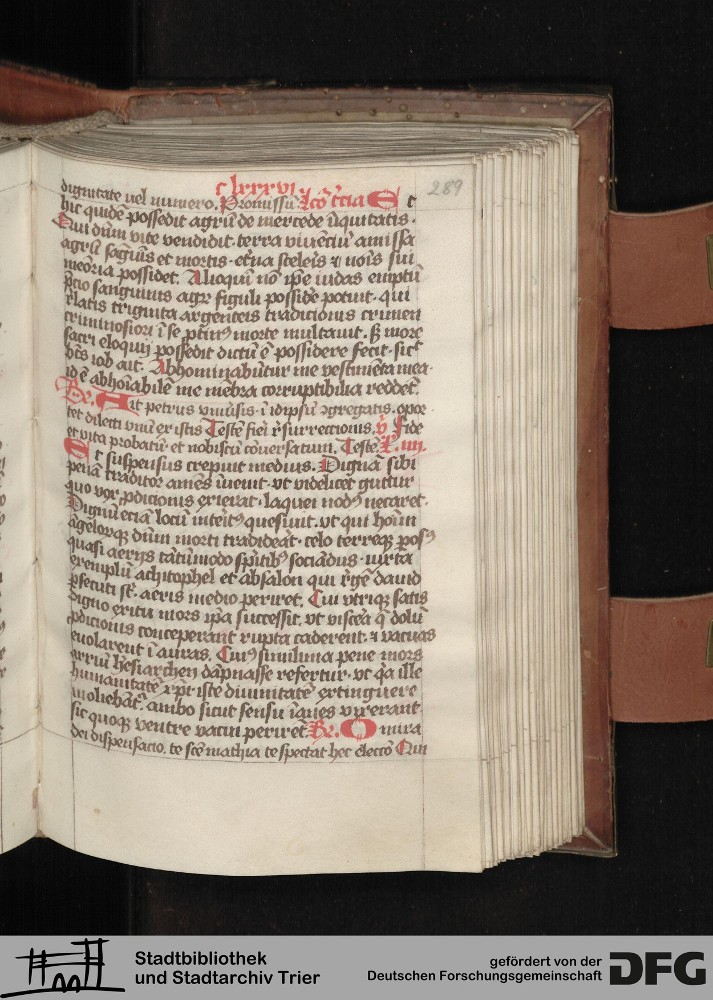 c lxxxvi
289
dignitate vel numero. Promissū. Lcō t̄cia E t
hic quidē possedit agrū de mercede īiquitatis.
Qui dum vite vendidit. terra viuenciū amissa
agrū sag̃uīs et mortis. et̃na sceleis ⁊ noīs sui
meōria possidet. Alioquī nō ip̄e iudas emptū
p̃cio sanguinis agr̄ figuli posside potuit. qui
r̃latis triginta argenteis tradicionis crimen
criminosiori ī se ptin⁹ morte multauit. s; more
sacri eloquij possedit dictū ē possidere fecit. sic̃
bt̄s iob ait. Abhominabūtur me vestimēta mea.
id ē abhoīabilē me mēbra corruptibilia reddet̃.
R̃. Ait petrus vniūsis. ī idip̄m ɔgregatis. opor
tet dilecti vnū ex istis Testē fieri r̃surrectionis. v̄ Fide
et vita probatū et nobiscū cōuersatum. Testē. L̃. iiii.
E t suspensus crepuit medius. Dignā sibi
penā traditor amēs īuenit. vt videlicet guttur
quo vox ꝓdicionis exierat. laquei nod⁹ necaret.
Dignū eciā locū interit⁹ quesiuit. vt qui hoīm
āgeloꝝq; dn̄m morti tradideat. celo terreq; ꝑos⁹
quasi aerijs tātūmodo sp̄itib⁹ sociādus. iuxta
exemplū achitophel et absalon qui r̃gē dauid
ꝑsecuti st̄. aeris medio periret. Cui vtriq; satis
digno exitu mors ip̄a successit. vt viscea q̄ dolū
ꝓdicionis conceperant rupta caderent. ⁊ vacuas
euolarent ī auras. Cui⁹ simillima pene mors
arriū h̃esiarchen dāpnasse refertur. vt q̄a ille
humanitatē xp̄i iste diuinitatē extinguere
moliebāt̃. ambo sicut sensu īanes vixerant.
sic quoq; ventre vacui periret̃. R̃. O mira
dei dispensacio. te sc̄ē mathia te spectat hec electō Qui
Stadtbibliothek
und Stadtarchiv Trier
gefördert von der
Deutschen Forschungsgemeinschaft
DFG